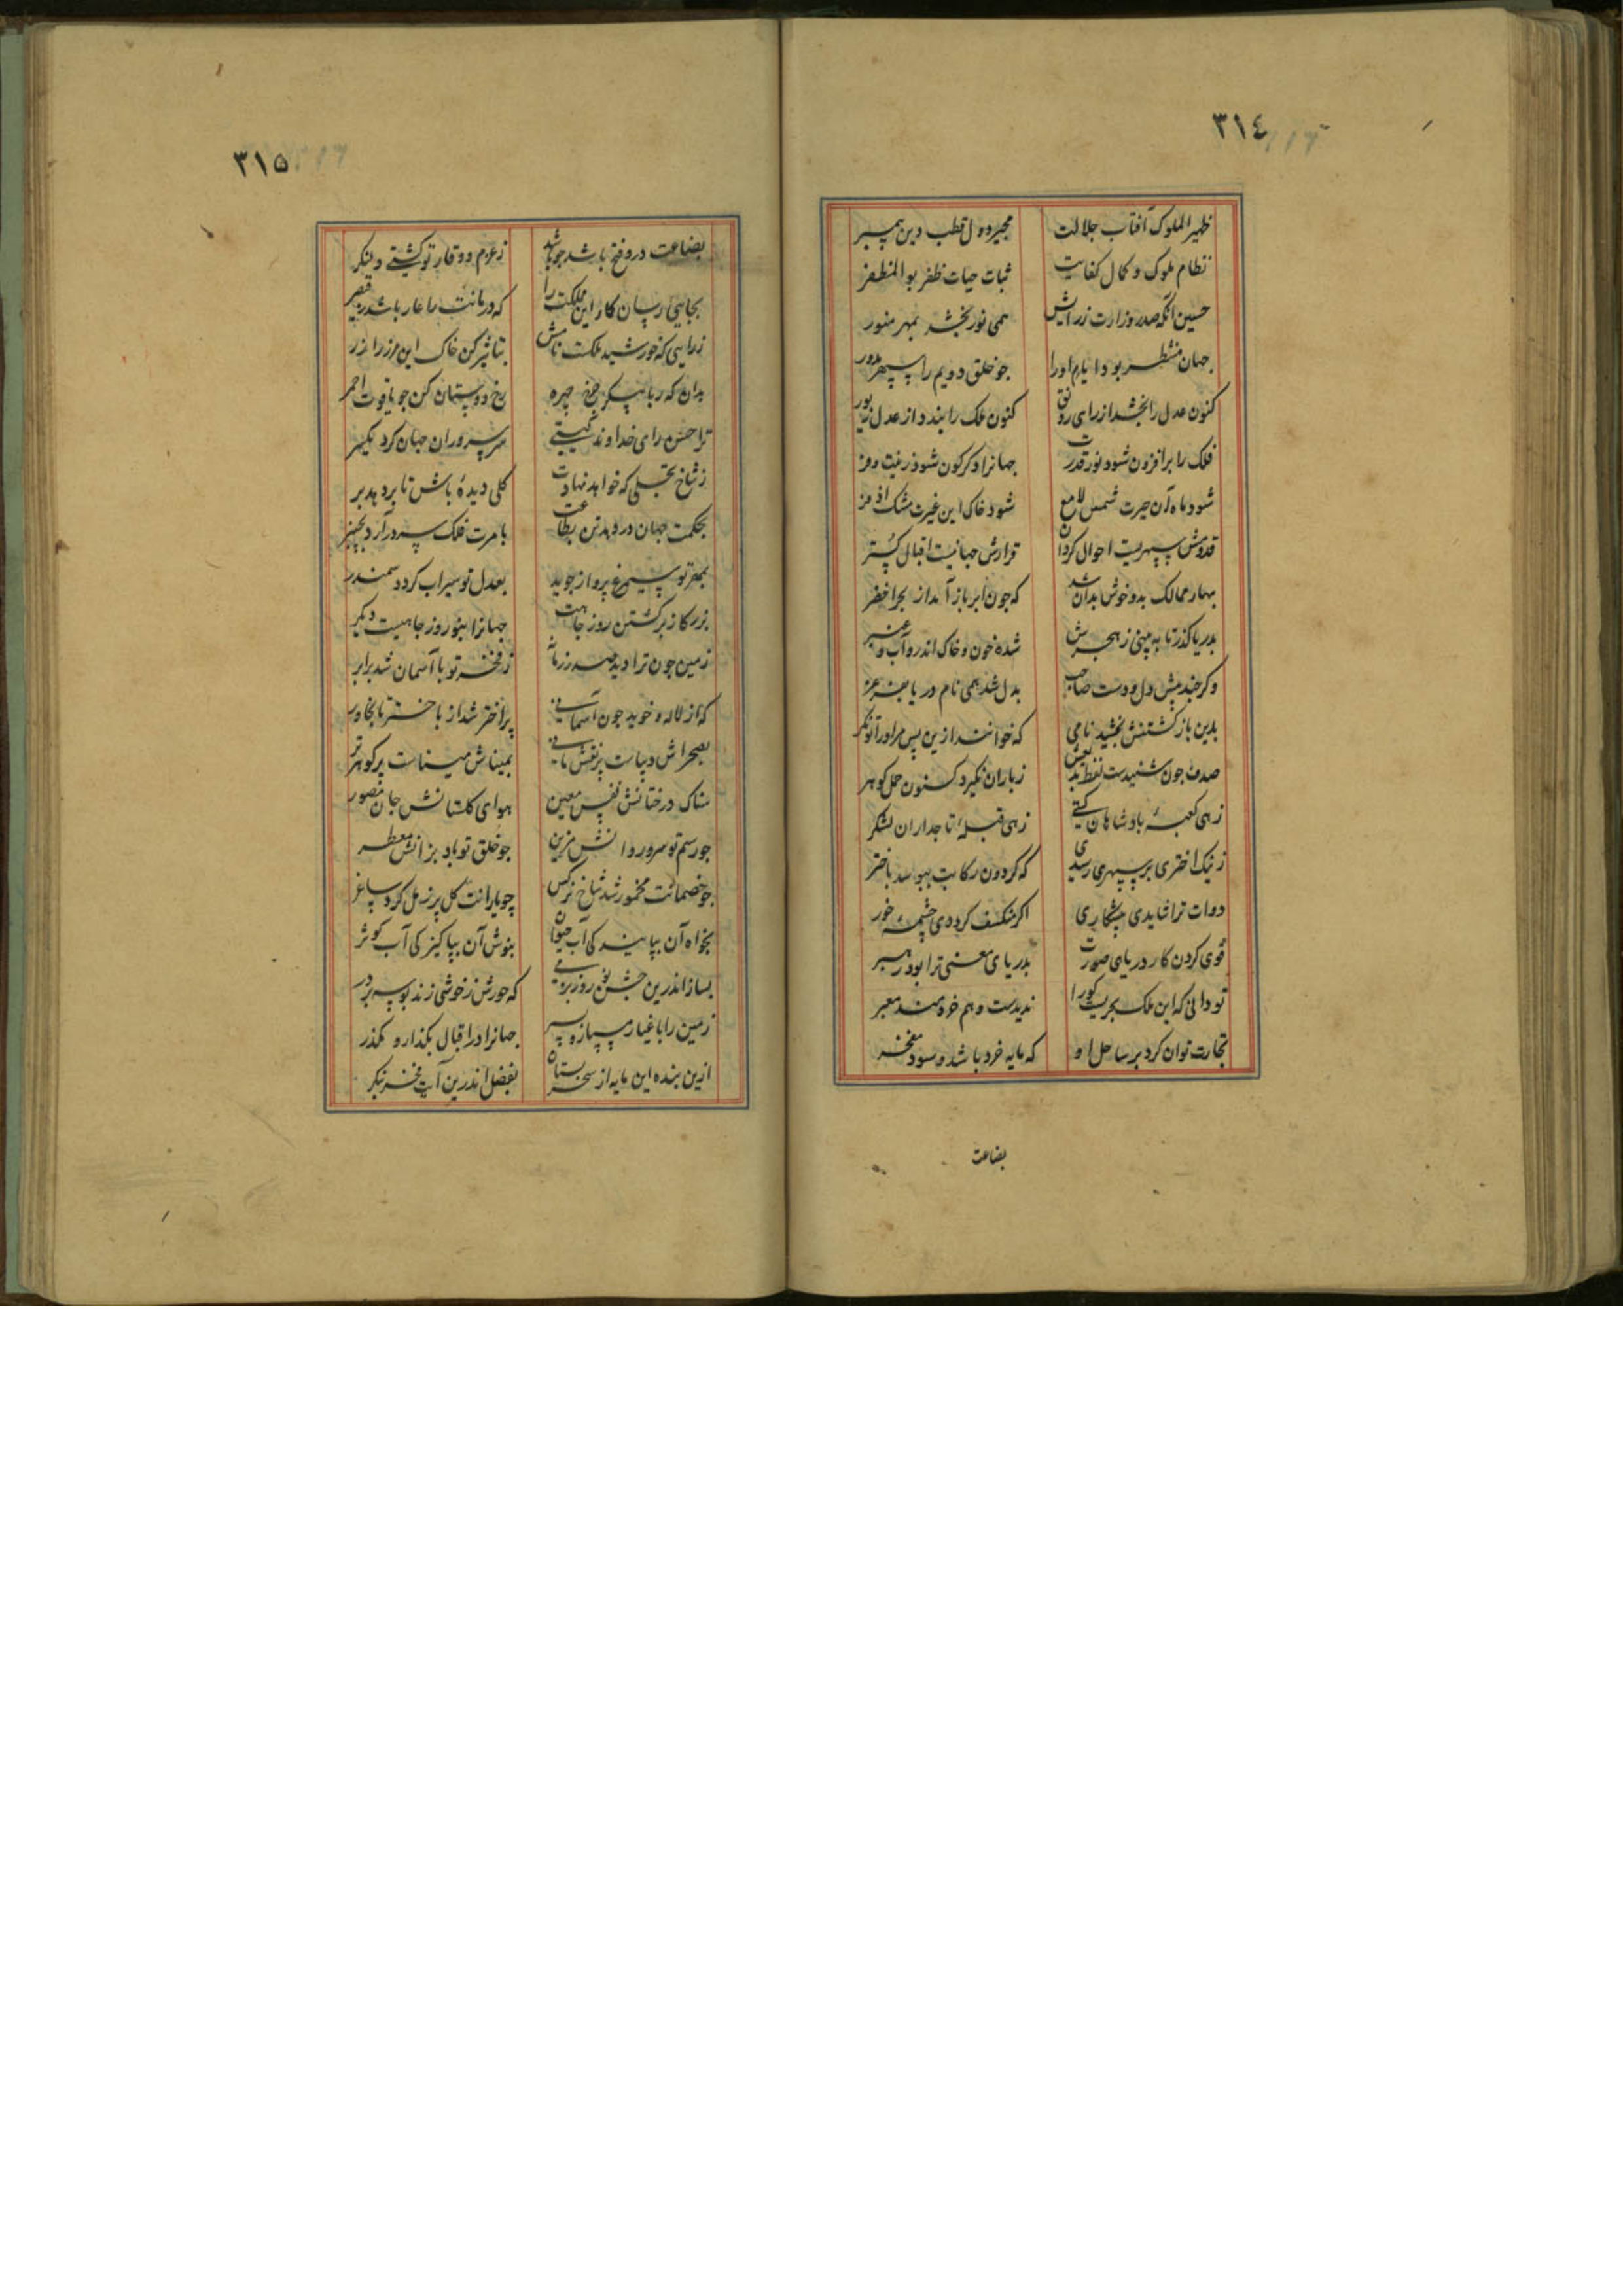 ٣١٤
ظهیر الملوک آفتاب جلالت مجیر دول قطب دین پیمبر
نظام ملوک و کمال کفایت ثبات حیات ظفر بو المظفر
حسین آنکه صدر وزارت زرایش همی نور بخشد بمهر منور
جهان منتظر بود ایام او را جو خلق دویم را سپهر مدور
کنون عدل را بخشد از رای رونق کنون ملک را بندد از عدل زیور
فلک را برافزون شود نور قدرت جهانرا دکرکون شود زینت و فر
شود ماه آن حیرت شمس لامع شود خاک این غیرت مشک اذفر
قدومش سپهریست احوال کردان قرارش جهانیست اقبال کستر
بهار ممالک بدو خوش بد آن شد که جون ابر باز آمد از بحر اخضر
بدریا کذر تا به بینی ز هجرش شده خون و خاک اندرو آب و عنبر
وکر جند پیش دل و دست صاحب بدل شد همی نام دریا بفرغر
بدین باز کشتنش بخشید نامی که خوانند ازین پس مر او را توانکر
صدف جون شنیدست لفظ بدیعش ز باران نکیرد کنون حمل کوهر
زهی کعبهٔ پادشاهان کیتی زهی قبلهٔ تاجداران لشکر
ز نیک اختری بر سپهری رسیدی که کردون رکابت ببوسد باختر
دوات ترا شایدی پیشکاری اکر منکسف کرددی چشمهٔ خور
قوی کردن کار دریای صورت بدریای معنی ترا بود رهبر
تو دانی که این ملک بحریست کورا ندیدست وهم خردمند معبر
تجارت توان کرد بر ساحل او که مایه خرد باشد و سود مفخر
بضاعت
٣١٥
بضاعت درو فتح باشد جو باشد ز عزم و وقار تو کشتی و لنکر
بجایی رسان کار این مملکت را که دربانت را عار باشد ز قیصر
زرایی که خورشید ملکست نامش بتاثیر کن خاک این مرز را زر
بدان که رباپیکر چرخ چهره رخ دوستان کن جو یاقوت احمر
ترا حسن رای خداوند کیتی سر سروران جهان کرد یکسر
ز شاخ تجملی که خواهد نهادت کلی دیدهٔ باش تا بر دهد بر
بحکمت جهان در دهد تن بطاعت بامرت فلک سر در آرد بچنبر
بمهر تو سیمرغ پرواز جوید بعدل تو سیراب کردد سمندر
بزرکا ز برکشتن روز جاهت جهانرا بنوروز جاهیست دیکر
زمین جون ترا دید صدر زمانه ز فخر تو با آسمان شد برابر
که از لاله و خوید جون آسمانی پر اختر شد از باختر تا بخاور
بصحراش دیباست پر نقش مانی بمیناش میناست پر کوهر تر
سناک درختانش نفس معین هوای کلستانش جان مصور
جو رسم تو سرو روانش مزین جو خلق تو باد بزانش معطر
جو خصمانت مخمور شد شاخ نرکس چو یارانت کل پر ز مل کرد ساغر
بخواه آن بپاینده کی آب حیوان بنوش آن بپاکیزکی آب کوثر
بساز اندرین جشن نوروز بزمی که حورش ز خوشی زند بوسه بر در
زمین را باغیار مسپار و مسپر جهانرا در اقبال بکذار و بکذر
ازین بنده این مایه از سحر بستان بفضل اندرین آیت فخر بنکر